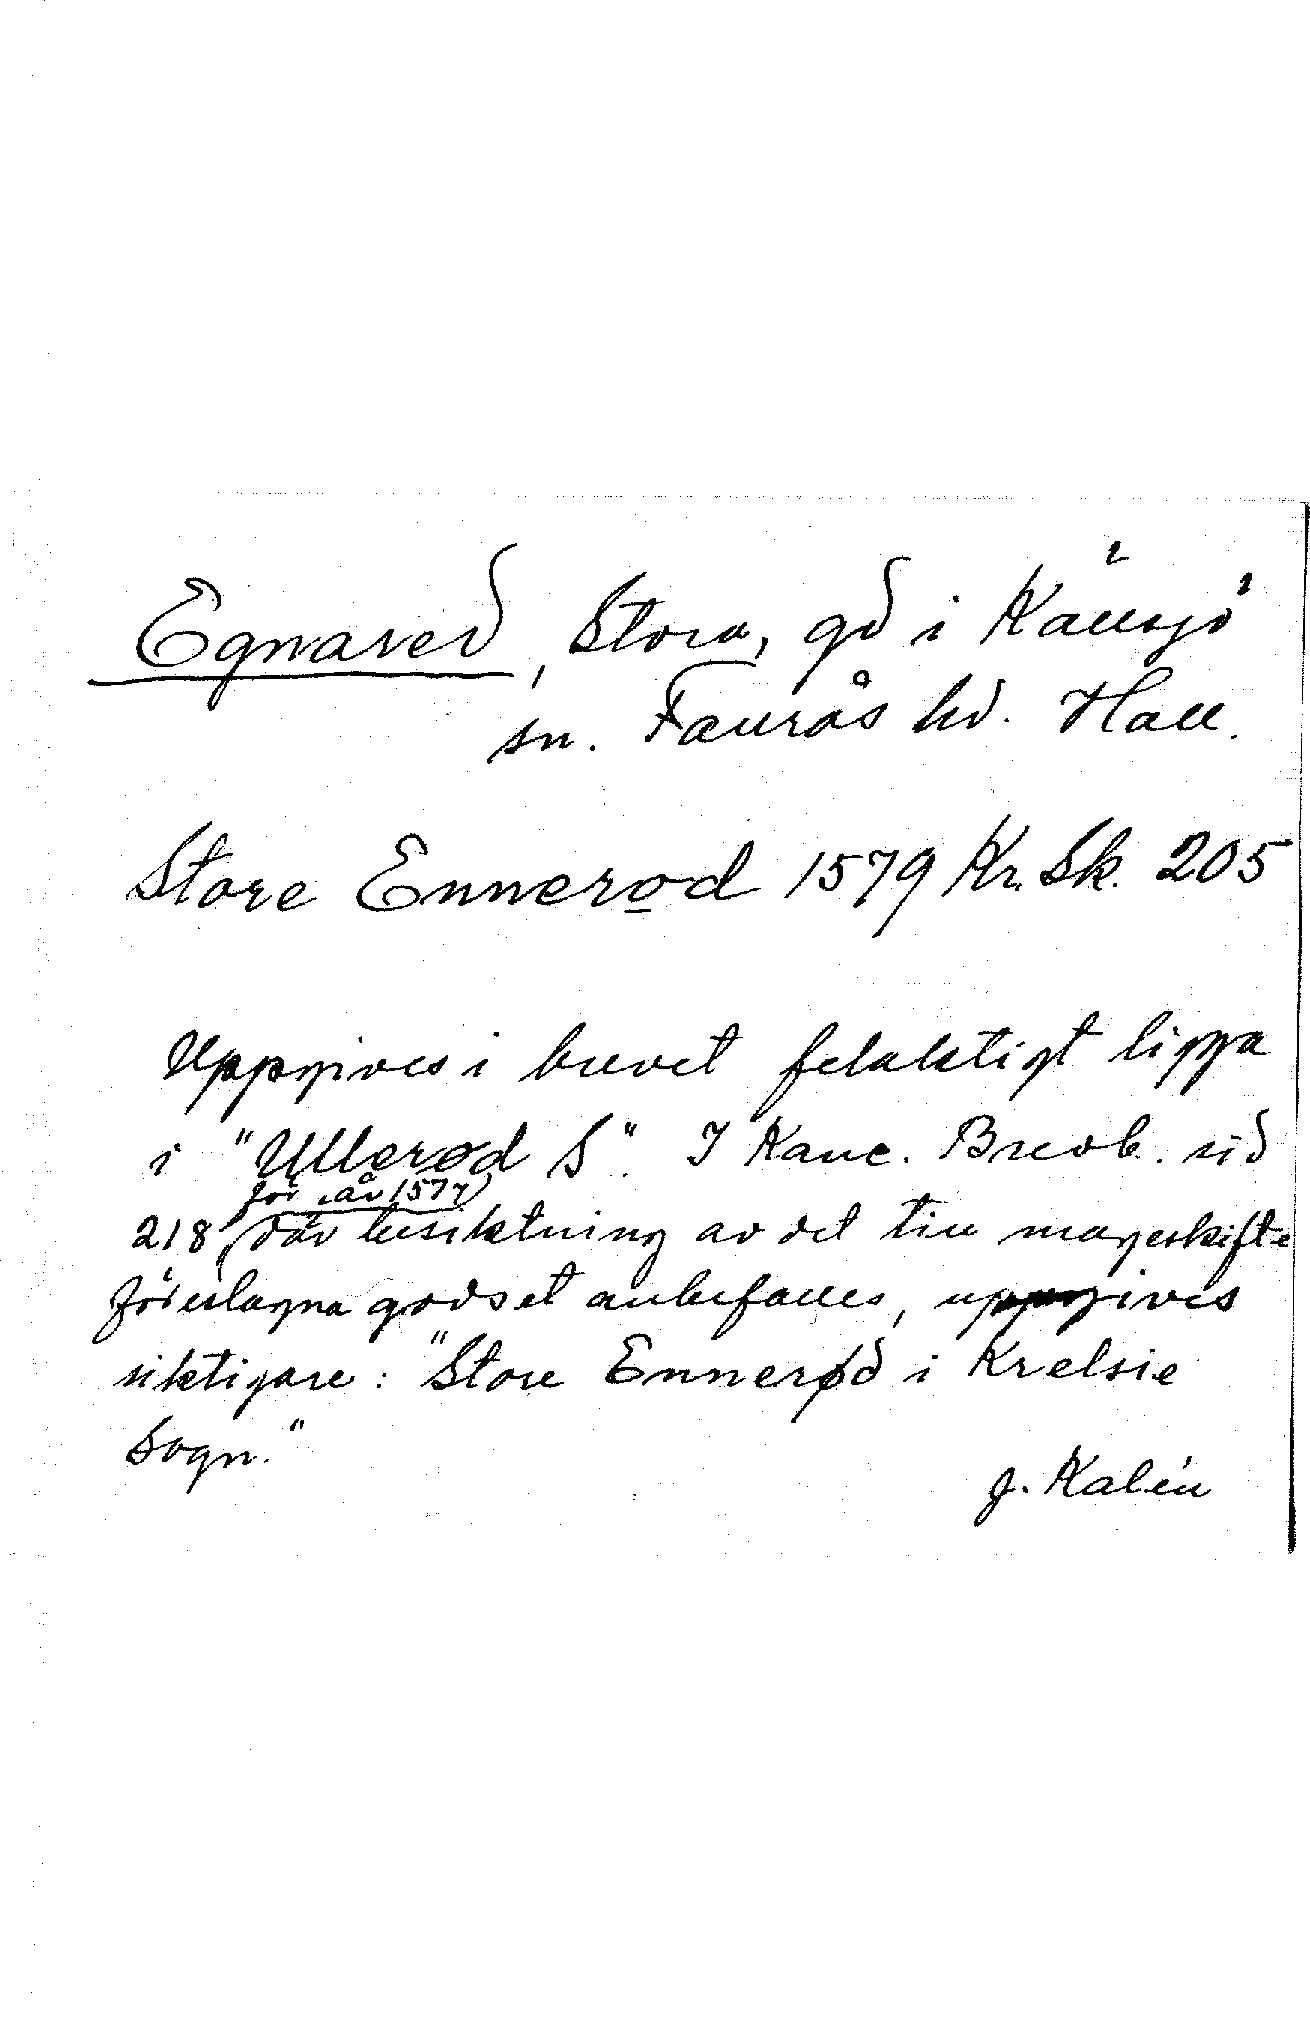 Egnared, Stora, gd i Källsjö
sn. Faurås hd. Hall.
Store Ennerød 1579 Kr. Sk. 205
Uppgives i brevet felaktigt ligga
i "Ullerød S". I Kanc. Brevb. sid
för år 1577
218, där besiktning av det till mageskifte
föreslagna godset anbefalles, uppgives
riktigare: "Store Ennerød i Krelsie
Sogn."
J. Kalén